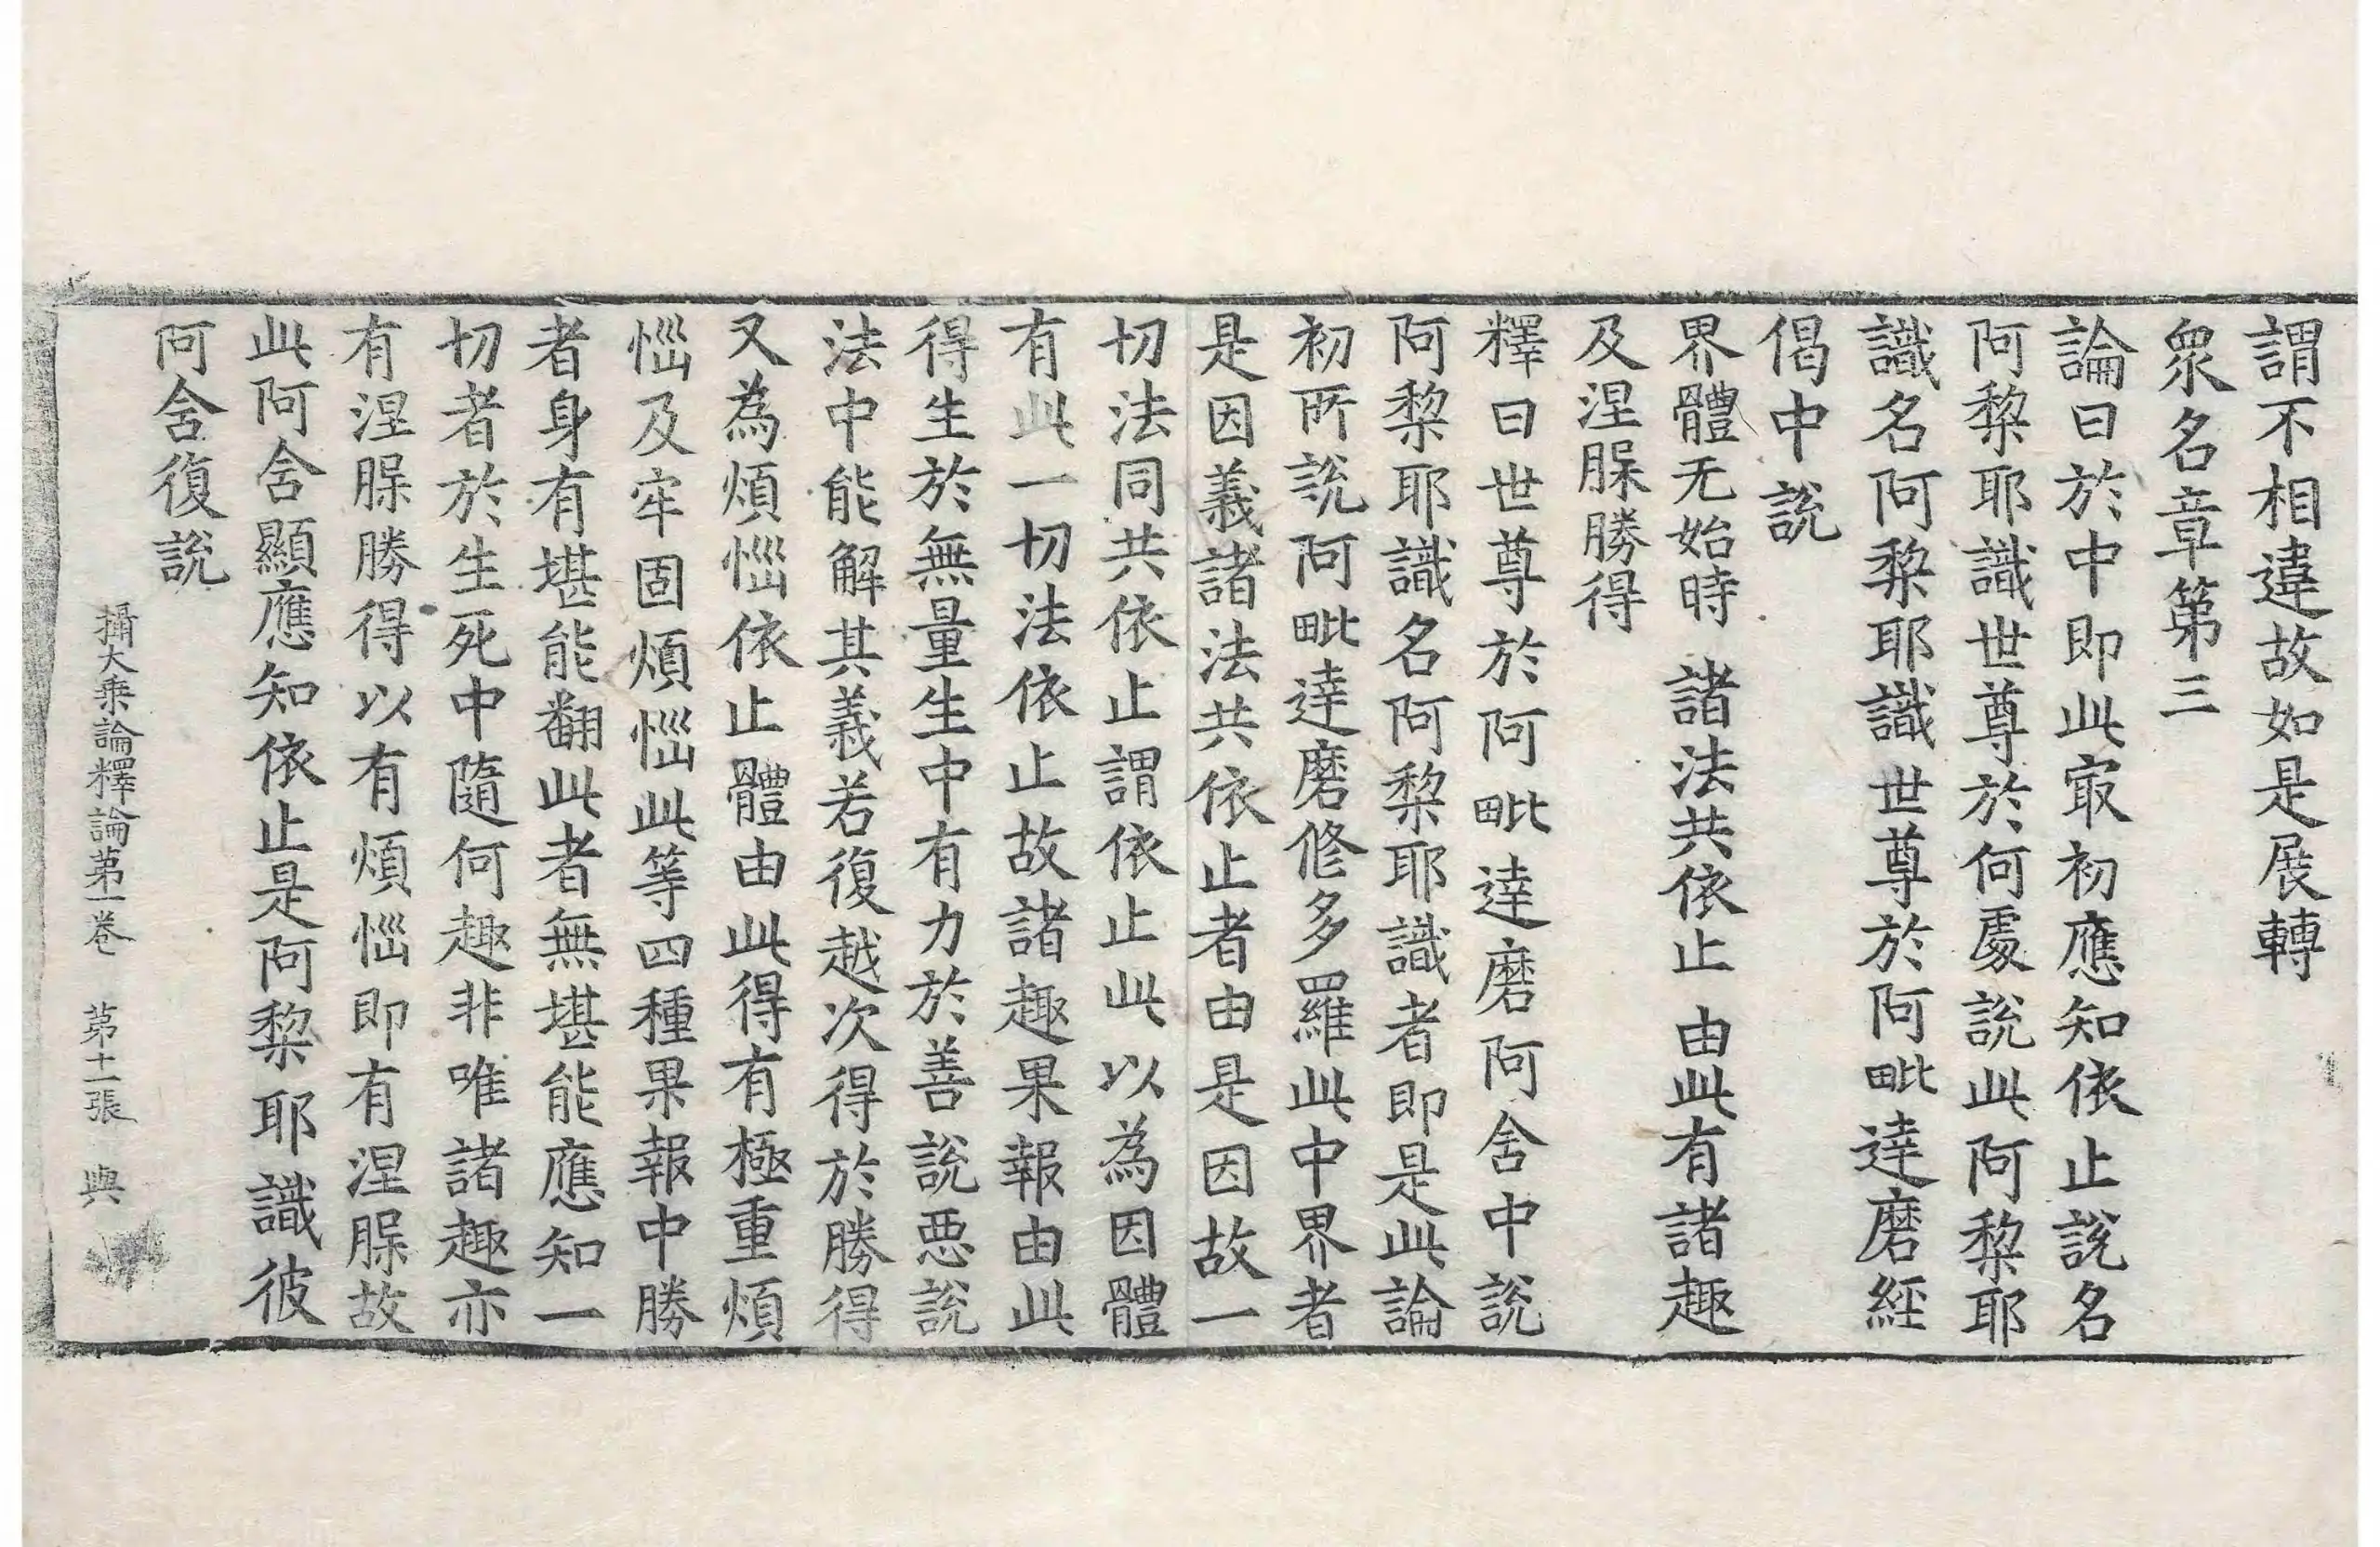 謂不相違故如是展轉
衆名章第三
論曰於中即此㝡初應知依止說名
阿棃耶識世尊於何處說此阿棃耶
識名阿棃耶識世尊於阿毗達磨經
偈中說
界體无始時　諸法共依止　由此有諸趣
及涅槃勝得
釋曰世尊於阿毗達磨阿舍中說
阿棃耶識名阿棃耶識者即是此論
初所說阿毗達磨修多羅此中界者
是因義諸法共依止者由是因故一
切法同共依止謂依止此以為因體
有此一切法依止故諸趣果報由此
得生於無量生中有力於善說惡說
法中能解其義若復越次得於勝得
又為煩惱依止體由此得有極重煩
惱及牢固煩惱此等四種果報中勝
者身有堪能翻此者無堪能應知一
切者於生死中隨何趣非唯諸趣亦
有涅槃勝得以有煩惱即有涅槃故
此阿舍顯應知依止是阿棃耶識彼
阿舍復說
攝大乘論釋論第一卷　第十一張　輿